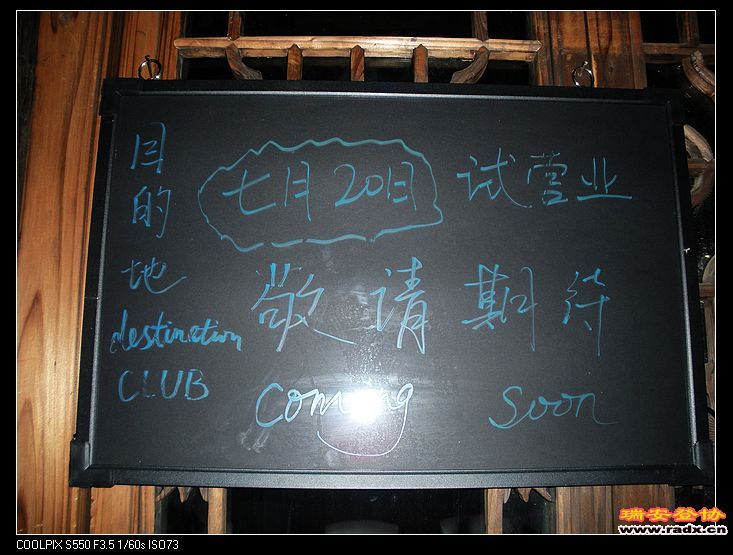 目的地
destination
CLUB
七月20日 试营业
敬请期待
Coming Soon
瑞安登协
www.radx.cn
COOLPIX S550 F3.5 1/60s ISO73